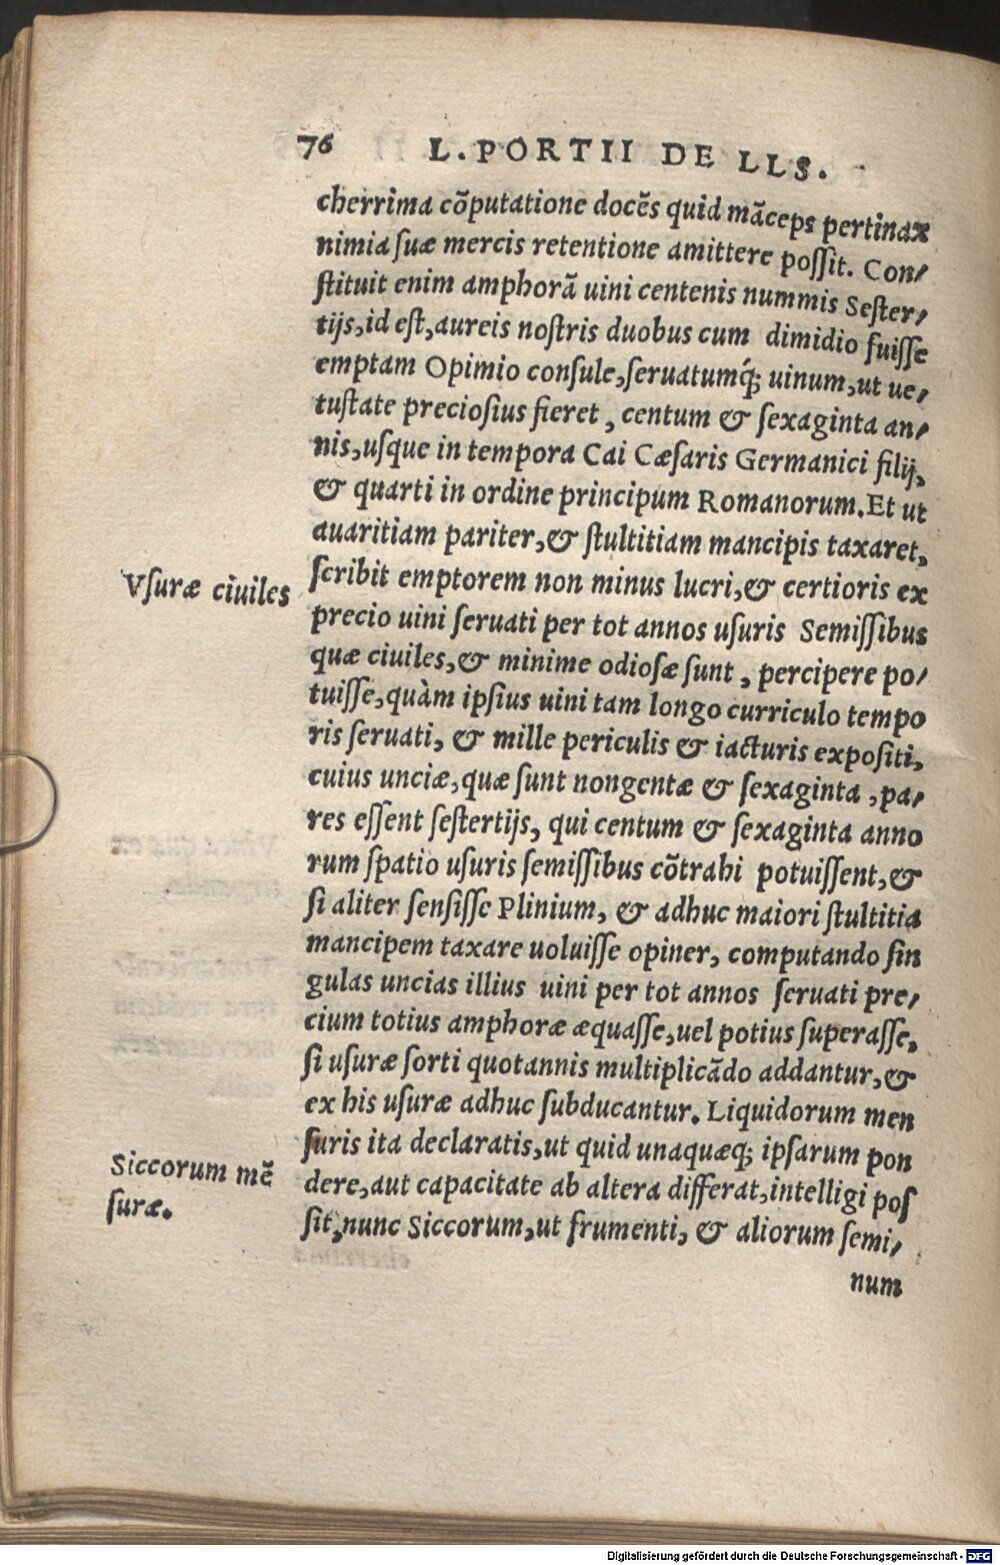 76 L. PORTII DE LLS.
cherrima cõputatione docẽs quid mãceps pertinax
nimia suæ mercis retentione amittere possit. Con/
stituit enim amphorã uini centenis nummis Sester/
tijs, id est, aureis nostris duobus cum dimidio fuisse
emptam Opimio consule, seruatumq́; uinum, ut ue/
tustate preciosius fieret, centum & sexaginta an/
nis, usque in tempora Cai Cæsaris Germanici filij,
& quarti in ordine principum Romanorum. Et ut
auaritiam pariter, & stultitiam mancipis taxaret,
Vsuræ ciuiles
scribit emptorem non minus lucri, & certioris ex
precio uini seruati per tot annos usuris Semissibus
quæ ciuiles, & minime odiosæ sunt, percipere po/
tuisse, quàm ipsius uini tam longo curriculo tempo
ris seruati, & mille periculis & iacturis expositi,
cuius unciæ, quæ sunt nongentæ & sexaginta, pa/
res essent sestertijs, qui centum & sexaginta anno
rum spatio usuris semissibus cõtrahi potuissent, &
si aliter sensisse Plinium, & adhuc maiori stultitia
mancipem taxare uoluisse opiner, computando sin
gulas uncias illius uini per tot annos seruati pre/
cium totius amphoræ æquasse, uel potius superasse,
si usuræ sorti quotannis multiplicãdo addantur, &
ex his usuræ adhuc subducantur. Liquidorum men
suris ita declaratis, ut quid unaquæq; ipsarum pon
Siccorum mẽ
suræ.
dere, aut capacitate ab altera differat, intelligi pos
sit, nunc Siccorum, ut frumenti, & aliorum semi/
num
Digitalisierung gefördert durch die Deutsche Forschungsgemeinschaft - DFG